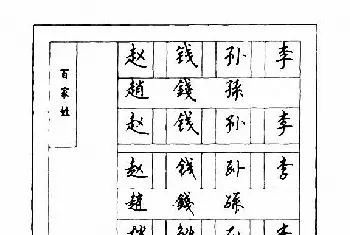 百家姓
赵 钱 孙 李
趙 錢 孫
赵 钱 孙 李
赵 钱 孙 李
趙 錢 孫